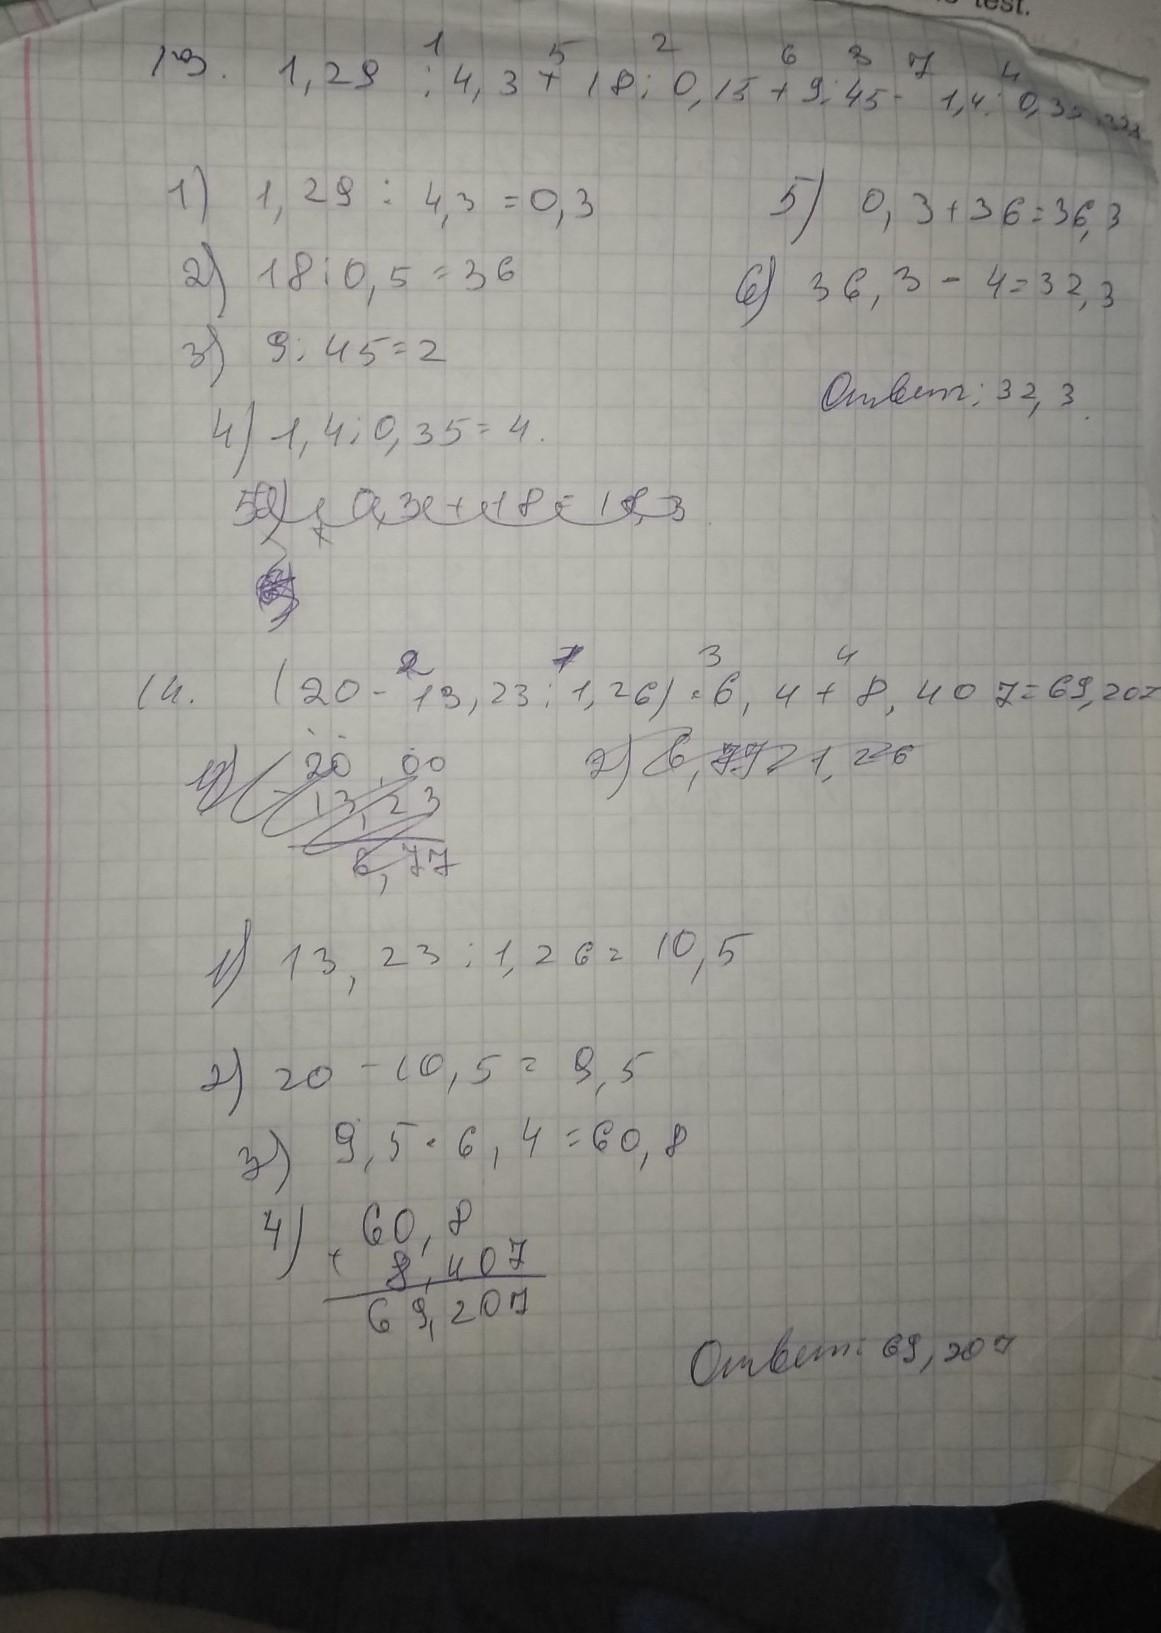 test.
1 5 2 6 3 7 4
13. 1,29 : 4,3 + 18 : 0,15 + 9 : 45 - 1,4 : 0,35
1) 1,29 : 4,3 = 0,3
2) 18 : 0,5 = 36
3) 9 : 45 = 2
4) 1,4 : 0,35 = 4.
0,3 + 18 = 18,3
5) 0,3 + 36 = 36,3
6) 36,3 - 4 = 32,3
Ответ: 32,3.
2 1 3 4
14. (20 - 13,23 : 1,26) · 6,4 + 8,407 = 69,207
20,00
- 13,23
6,77
2) 6,77 1,26
1) 13,23 : 1,26 = 10,5
2) 20 - 10,5 = 9,5
3) 9,5 · 6,4 = 60,8
4) 60,8
+ 8,407
69,207
Ответ: 69,207